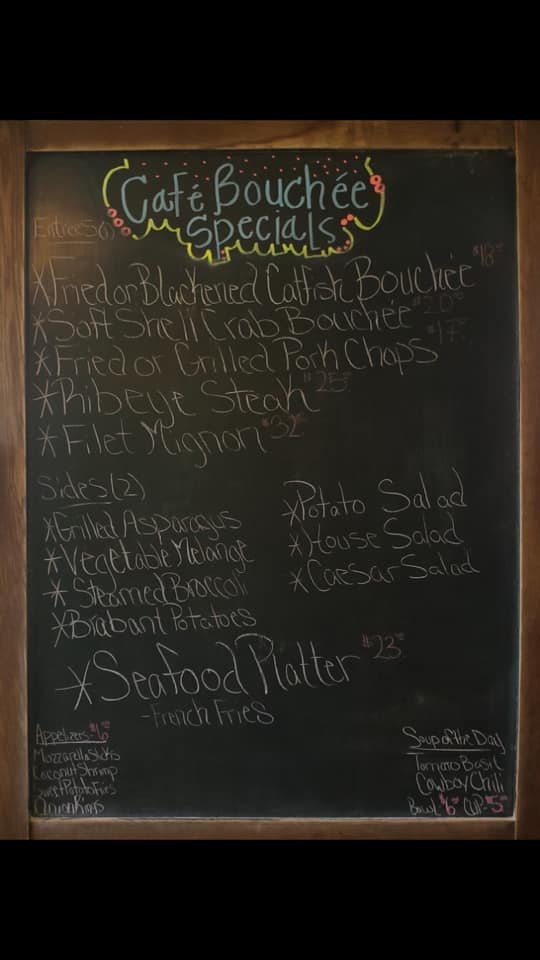 Café Bouchée
Specials
Entrees(1)
*Fried or Blackened Catfish Bouchée $18
*Soft Shell Crab Bouchée $20
*Fried or Grilled Pork Chops $17
*Ribeye Steak $25
*Filet Mignon $32
Sides(2)
*Grilled Asparagus
*Vegetable Melange
*Steamed Broccoli
*Brabant Potatoes
*Potato Salad
*House Salad
*Caesar Salad
*Seafood Platter $23
-French Fries
Appetizers-$6
Mozzarella Sticks
Coconut Shrimp
Sweet Potato Fries
Onion Rings
Soup of the Day
Tomato Basil
Cowboy Chili
Bowl-$6 Cup-$5